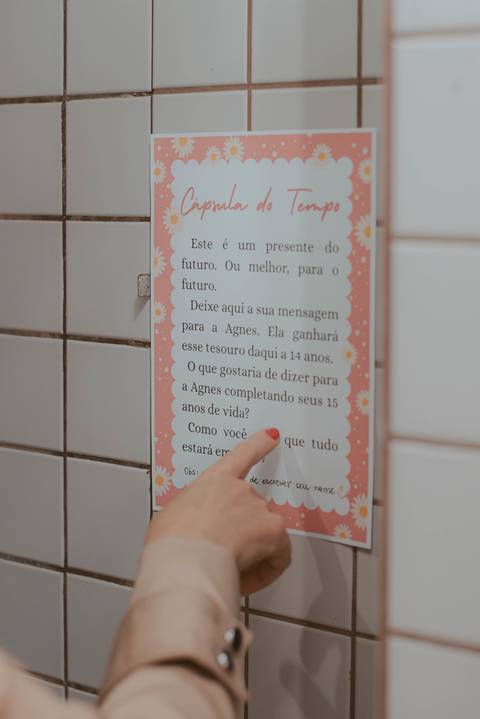 Cápsula do Tempo
Este é um presente do
futuro. Ou melhor, para o
futuro.
Deixe aqui a sua mensagem
para a Agnes. Ela ganhará
esse tesouro daqui a 14 anos.
O que gostaria de dizer para
a Agnes completando seus 15
anos de vida?
Como você que tudo
estará
Obs: de escrever seu nome